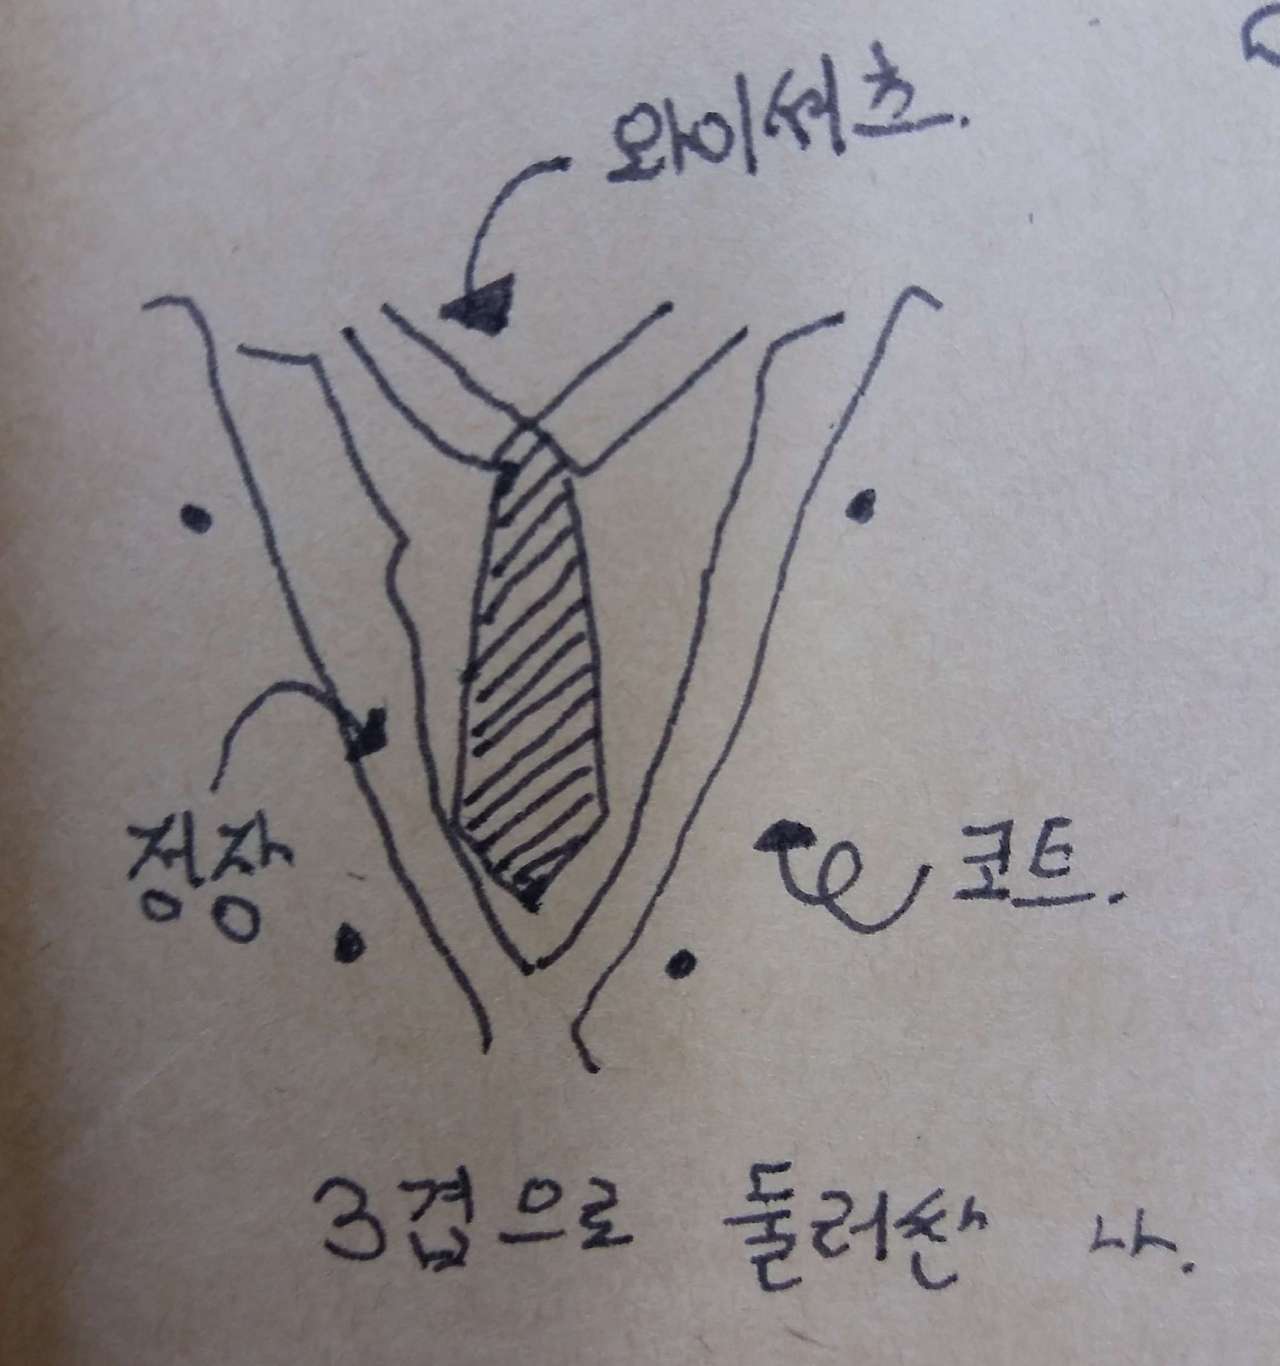 와이셔츠.
정장
코트.
3겹으로 둘러싼 나.